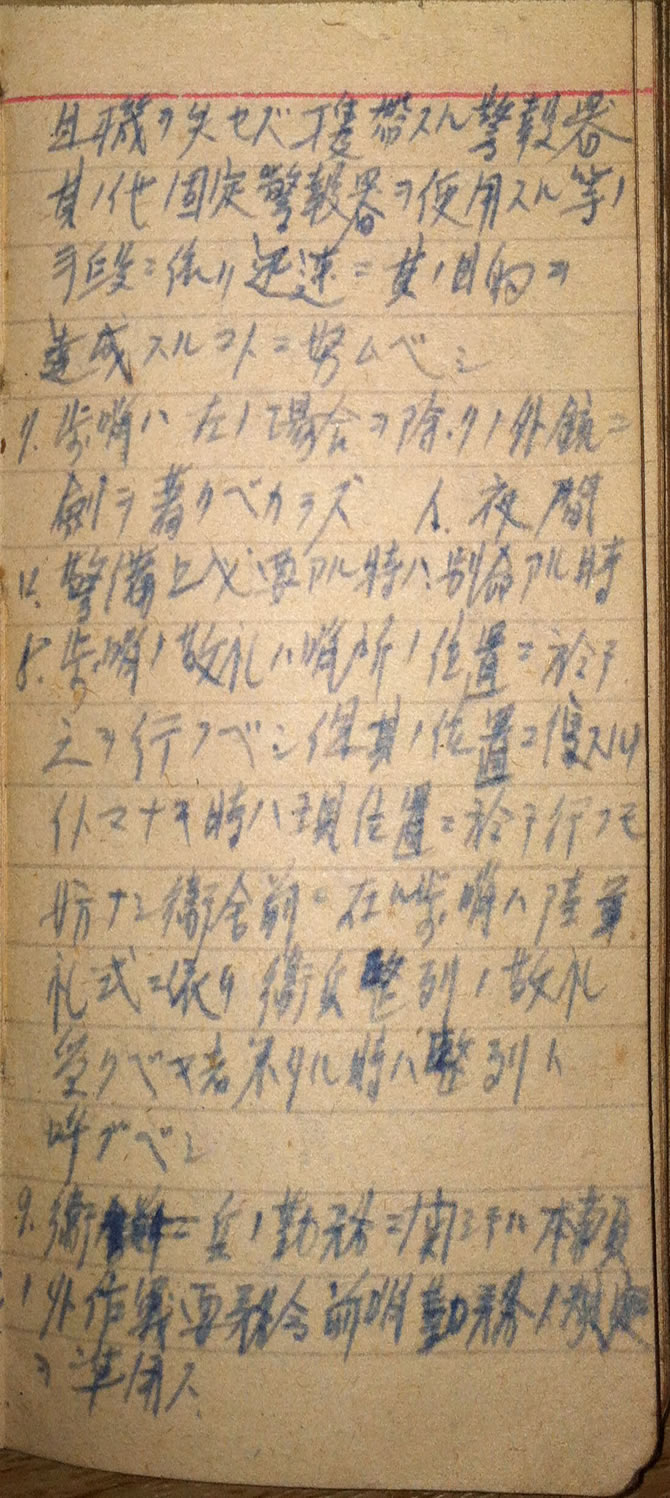 且機ヲ失セズ携帯スル警報器
其ノ他ノ固定警報器ヲ使用スル等ノ
手段ニ依リ迅速ニ其ノ目的ヲ
達成スルコトニ努ムベシ
7. 歩哨ハ左ノ場合ヲ除クノ外銃ニ
劍ヲ着クベカラズ 1. 夜間
ロ. 警備上必要アル時ハ. 別命アル時
8. 歩哨ノ敬礼ハ哨所ノ位置ニ於テ
之ヲ行フベシ但其ノ位置ニ復スル
イトマナキ時ハ現位置ニ於テ行フモ
妨ナシ衛舎前ニ在ル歩哨ハ陸軍
礼式ニ依リ衛兵整列ノ敬礼
受クベキ者来タル時ハ整列ト
呼ブベシ
9. 衛兵ノ勤務ニ関シテハ本
ノ外作戦要務令前哨勤務ノ
ヲ準用ス